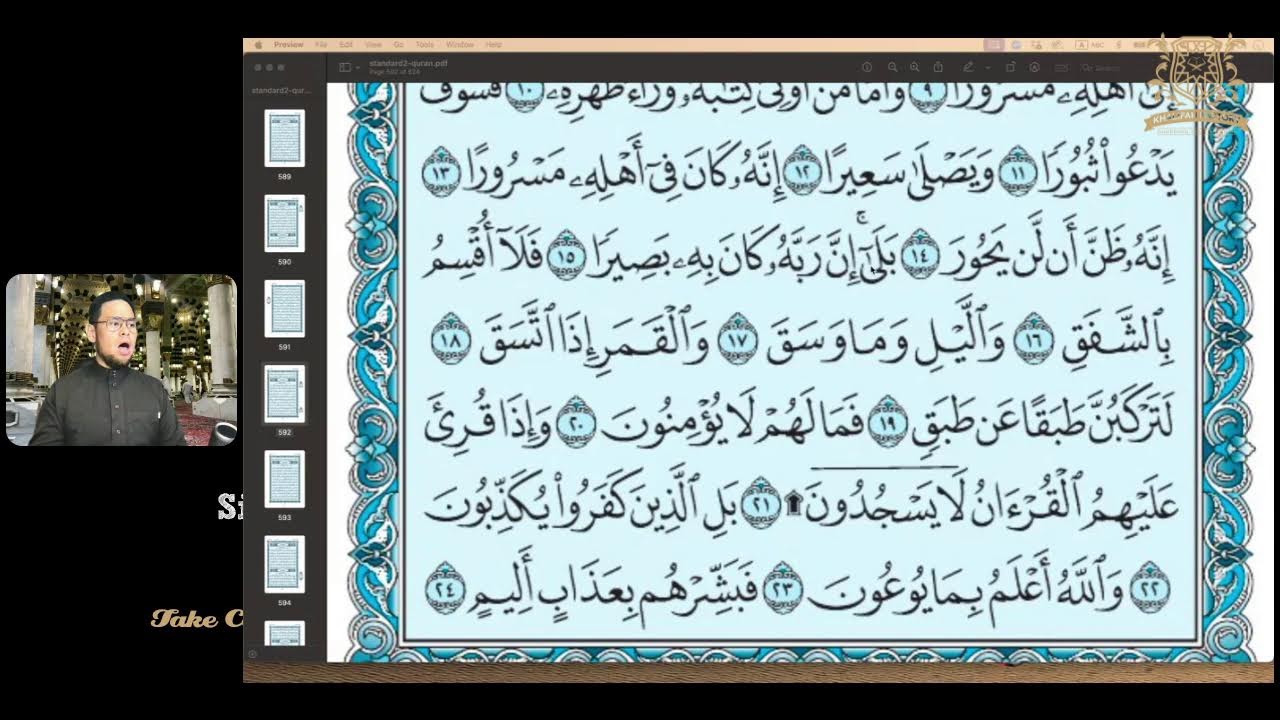 Preview File Edit View Go Tools Window Help
ABC
standard2-quran.pdf
Page 592 of 624
Search
standard2-qur...
589
590
591
592
593
594
مَسْرُورًا ٩ وَأَمَّا مَنْ أُوتِىَ كِتَٰبَهُۥ وَرَآءَ ظَهْرِهِۦ ١٠ فَسَوْفَ
يَدْعُوا۟ ثُبُورًا ١١ وَيَصْلَىٰ سَعِيرًا ١٢ إِنَّهُۥ كَانَ فِىٓ أَهْلِهِۦ مَسْرُورًا ١٣
إِنَّهُۥ ظَنَّ أَن لَّن يَحُورَ ١٤ بَلَىٰٓ ۚ إِنَّ رَبَّهُۥ كَانَ بِهِۦ بَصِيرًا ١٥ فَلَآ أُقْسِمُ
بِٱلشَّفَقِ ١٦ وَٱلَّيْلِ وَمَا وَسَقَ ١٧ وَٱلْقَمَرِ إِذَا ٱتَّسَقَ ١٨
لَتَرْكَبُنَّ طَبَقًا عَن طَبَقٍ ١٩ فَمَا لَهُمْ لَا يُؤْمِنُونَ ٢٠ وَإِذَا قُرِئَ
عَلَيْهِمُ ٱلْقُرْءَانُ لَا يَسْجُدُونَ ۩ ٢١ بَلِ ٱلَّذِينَ كَفَرُوا۟ يُكَذِّبُونَ
٢٢ وَٱللَّهُ أَعْلَمُ بِمَا يُوعُونَ ٢٣ فَبَشِّرْهُم بِعَذَابٍ أَلِيمٍ ٢٤
Take C